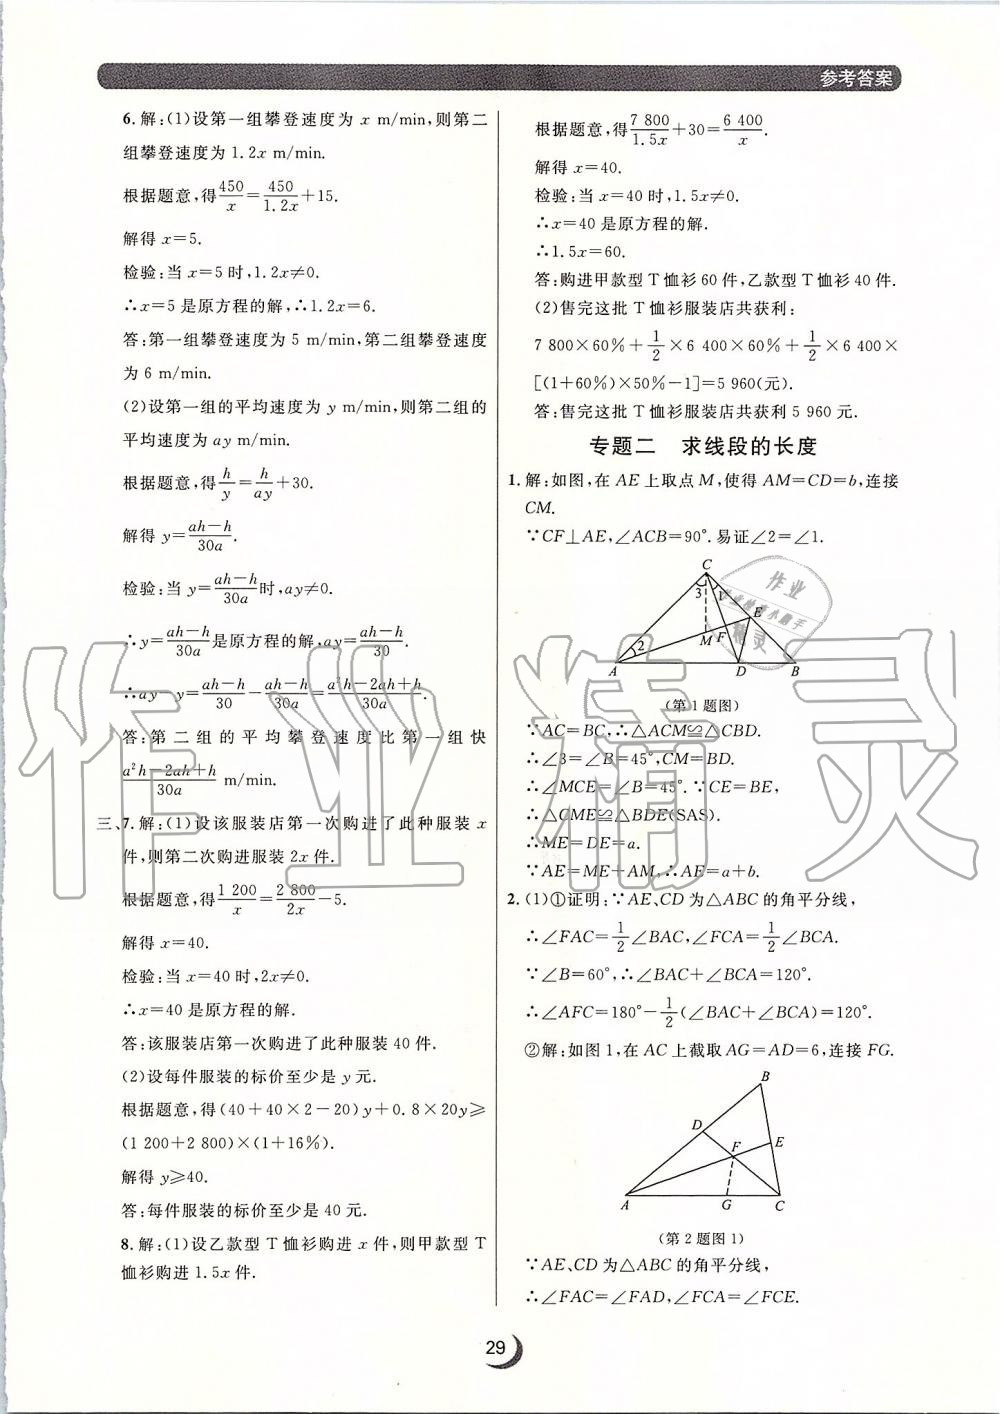 参考答案
6.解:(1)设第一组攀登速度为 x m/min,则第二
组攀登速度为 1.2x m/min.
根据题意,得450/x=450/1.2x+15.
解得 x=5.
检验:当 x=5 时,1.2x≠0.
∴x=5 是原方程的解,∴1.2x=6.
答:第一组攀登速度为 5 m/min,第二组攀登速度
为 6 m/min.
(2)设第一组的平均速度为 y m/min,则第二组的
平均速度为 ay m/min.
根据题意,得h/y=h/ay+30.
解得 y=(ah-h)/30a.
检验:当 y=(ah-h)/30a时,ay≠0.
∴y=(ah-h)/30a是原方程的解,ay=(ah-h)/30.
∴ay-y=(ah-h)/30-(ah-h)/30a=(a²h-2ah+h)/30a.
答:第二组的平均攀登速度比第一组快
(a²h-2ah+h)/30a m/min.
三、7.解:(1)设该服装店第一次购进了此种服装 x
件,则第二次购进服装 2x 件.
根据题意,得1 200/x=2 800/2x-5.
解得 x=40.
检验:当 x=40 时,2x≠0.
∴x=40 是原方程的解.
答:该服装店第一次购进了此种服装 40 件.
(2)设每件服装的标价至少是 y 元.
根据题意,得(40+40×2-20)y+0.8×20y≥
(1 200+2 800)×(1+16%).
解得 y≥40.
答:每件服装的标价至少是 40 元.
8.解:(1)设乙款型 T 恤衫购进 x 件,则甲款型 T
恤衫购进 1.5x 件.
根据题意,得7 800/1.5x+30=6 400/x.
解得 x=40.
检验:当 x=40 时,1.5x≠0.
∴x=40 是原方程的解.
∴1.5x=60.
答:购进甲款型 T 恤衫 60 件,乙款型 T 恤衫 40 件.
(2)售完这批 T 恤衫服装店共获利:
7 800×60%+1/2×6 400×60%+1/2×6 400×
[(1+60%)×50%-1]=5 960(元).
答:售完这批 T 恤衫服装店共获利 5 960 元.
专题二 求线段的长度
1.解:如图,在 AE 上取点 M,使得 AM=CD=b,连接
CM.
∵CF⊥AE,∠ACB=90°.易证∠2=∠1.
C
3 1
E
2 M F
A D B
(第 1 题图)
∵AC=BC,∴△ACM≌△CBD.
∴∠3=∠B=45°,CM=BD.
∴∠MCE=∠B=45°.∵CE=BE,
∴△CME≌△BDE(SAS).
∴ME=DE=a.
∵AE=ME+AM,∴AE=a+b.
2.(1)①证明:∵AE、CD 为△ABC 的角平分线,
∴∠FAC=1/2∠BAC,∠FCA=1/2∠BCA.
∵∠B=60°,∴∠BAC+∠BCA=120°.
∴∠AFC=180°-1/2(∠BAC+∠BCA)=120°.
②解:如图 1,在 AC 上截取 AG=AD=6,连接 FG.
B
D
F E
A G C
(第 2 题图 1)
∵AE、CD 为△ABC 的角平分线,
∴∠FAC=∠FAD,∠FCA=∠FCE.
29
作业精灵